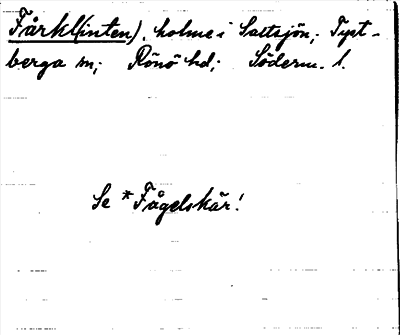 Fårkl(inten), holme i Saltsjön; Tyst-
berga sn; Rönö hd; Söderm. l.
Se *Fågelskär!